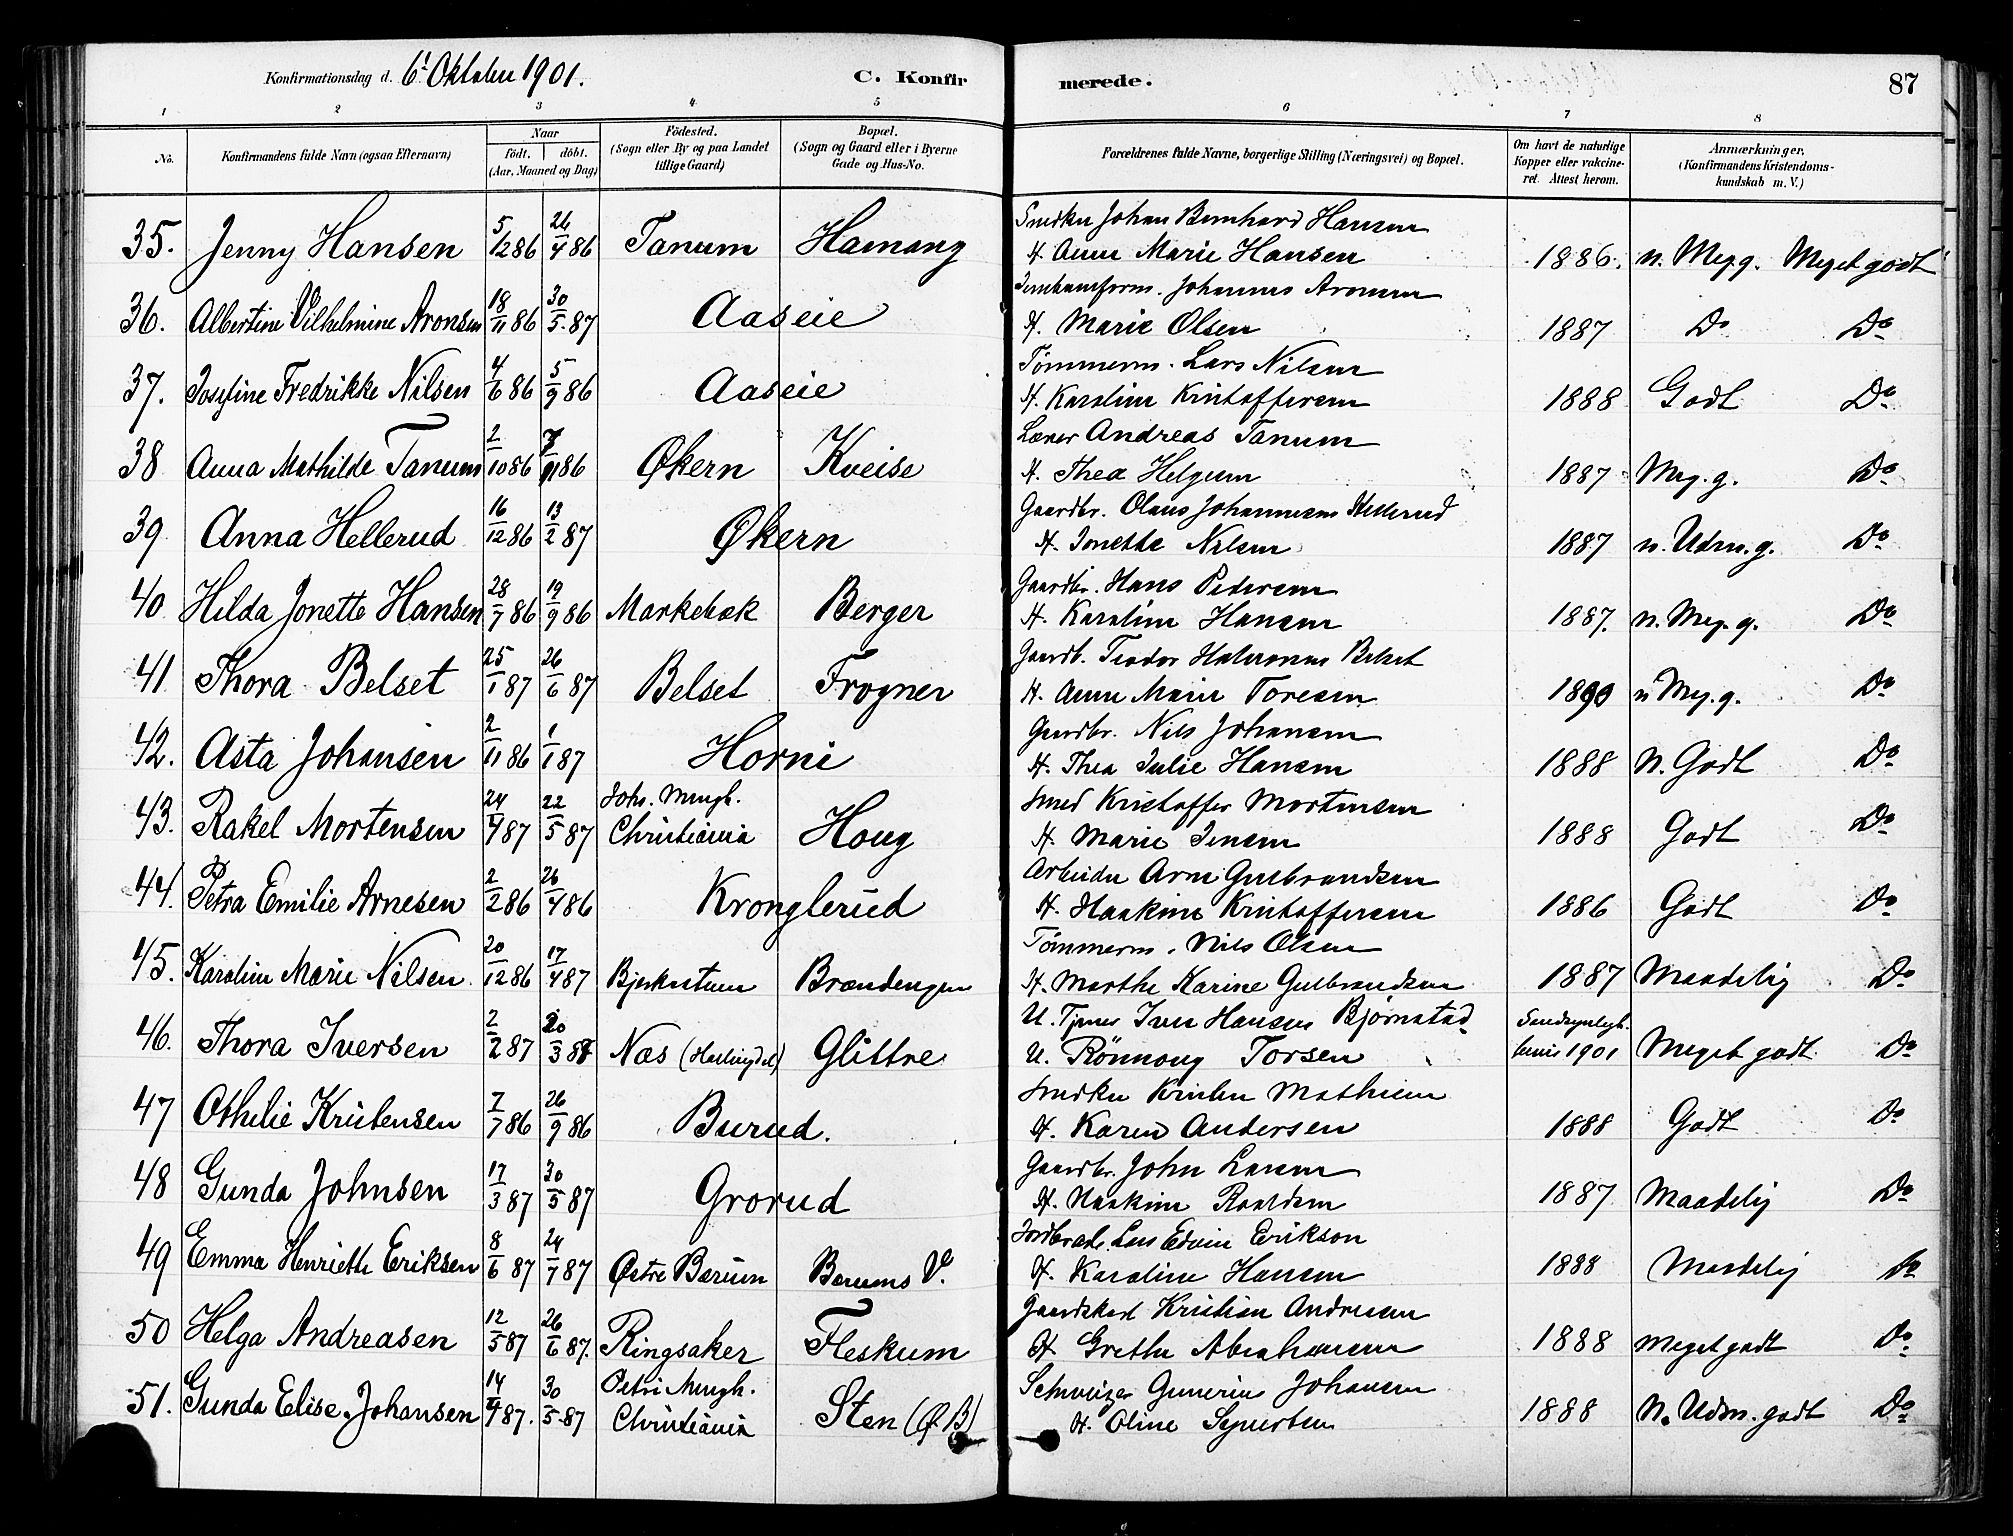 Konfirmationsdag d. 6' Oktober 1901.
C. Konfir merede.
87
1 2 3 4 5 6 7 8
No.
Konfirmandens fulde Navn (ogsaa Efternavn)
Naar
født. døbt.
(Aar, Maaned og Dag)
Fødested.
(Sogn eller By og paa Landet
tillige Gaard)
Bopæl.
(Sogn og Gaard eller i Byerne
Gade og Hus-No.
Forældrenes fulde Navne, borgerlige Stilling (Næringsvei) og Bopæl.
Om havt de naturlige
Kopper eller vakcine-
ret. Attest herom.
Anmærkninger.
(Konfirmandens Kristendoms-
kundskab m. V.)
Snedker Johan Bernhard Hansen
35. Jenny Hansen 5/12 86 26/4 86 Tanum Hamang H. Anne Marie Hansen 1886. n. Meg. g. Meget godt
Johannes Aronsen
36. Albertine Vilhelmine Aronsen 18/11 86 30/5 87 Aaseie H. Marie Olsen 1887 Do Do
Tømmerm. Lars Nilsen
37. Josefine Fredrikke Nilsen 4/6 86 5/9 86 Aaseie H. Karoline Kristoffersen 1888 Godt Do
Lærer Andreas Tanum
38 Anna Mathilde Tanum 2/10 86 86 Økern Kveise H. Thea Helgum 1887 Meg. g. Do
Gaardbr. Olaus Johannesen Hellerud
39 Anna Hellerud 16/12 86 13/2 87 Økern H. Jonette Nilsen 1887 n. Udm. g. Do
Gaardbr. Hans Pedersen
40 Hilda Jonette Hansen 28/7 86 19/9 86 Markebæk Berger H. Karoline Hansen 1887. n. Meg. g. Do
Gaardb. Teodor Halvorsen Belset
41 Thora Belset 25/1 87 26/6 87 Belset Frogner H. Anne Marie Toresen 1890 n Meg. g. Do
Gaardbr. Nils Johansen
42. Asta Johansen 2/11 86 1/1 87 Horni H. Thea Julie Hansen 1888 N. Godt Do
Joh. Mengh. Smed Kristoffer Mortensen
43. Rakel Mortensen 24/4 87 22/5 87 Christiania Houg H. Marie Jensen 1888 Godt Do
Arbeider Arne Gulbrandsen
44. Petra Emilie Arnesen 2/2 86 26/4 86 Kronglerud H. Haakine Kristoffersen 1886 Godt Do
Tømmerm. Nils Olsen
45. Karoline Marie Nilsen 20/12 86 17/4 87 Bjerkestuen Brændengen H. Marthe Karine Gulbrandsen 1887 Maadelig Do
U. Tjener Iver Hansen Bjørnstad
46. Thora Iversen 2/2 87 20/3 87 Næs (Hallingdal) Glittre U. Rønnoug Torsen 1901 Meget godt Do
Snedker Kristen Mathisen
47 Othilie Kristensen 7/7 86 26/9 86 Burud. H. Karen Andersen 1888 Godt Do
Gaardbr. John Larsen
48 Gunda Johnsen 17/3 87 30/5 87 Grorud H. Haakine Roaldsen 1887 Maadelig Do
Jordbrudr. Lars Edvin Erikson
49 Emma Henriette Eriksen 8/6 87 24/7 87 Østre Bærum Bærums V. H. Karoline Hansen 1888 Maadelig Do
Gaardskarl Kristian Andreasen
50 Helga Andreasen 12/5 87 26/6 87. Ringsaker Fleskum H Grethe Abrahamsen 1888 Meget godt Do
Petri Mengh. Schweizer Gunerius Johansen
51. Gunda Elise Johansen 14/4 87. 30/5 87 Christiania Sten (Ø B) H. Oline Syversten 1888 N. Udm. godt Do